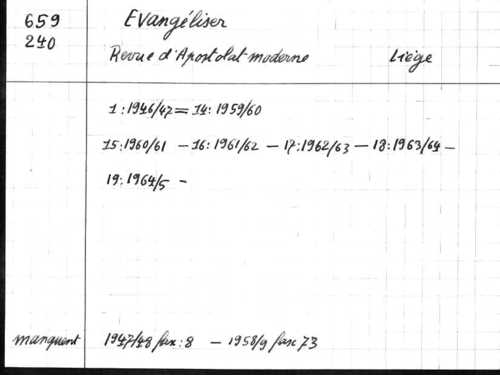 659
240
Evangéliser
Revue d'Apostolat moderne Liège
1:1946/47 = 14: 1959/60
15:1960/61 - 16: 1961/62 - 17:1962/63 - 18:1963/64 -
19:1964/5 -
manquent 1947/48 fasc: 8 - 1958/9 fasc 73